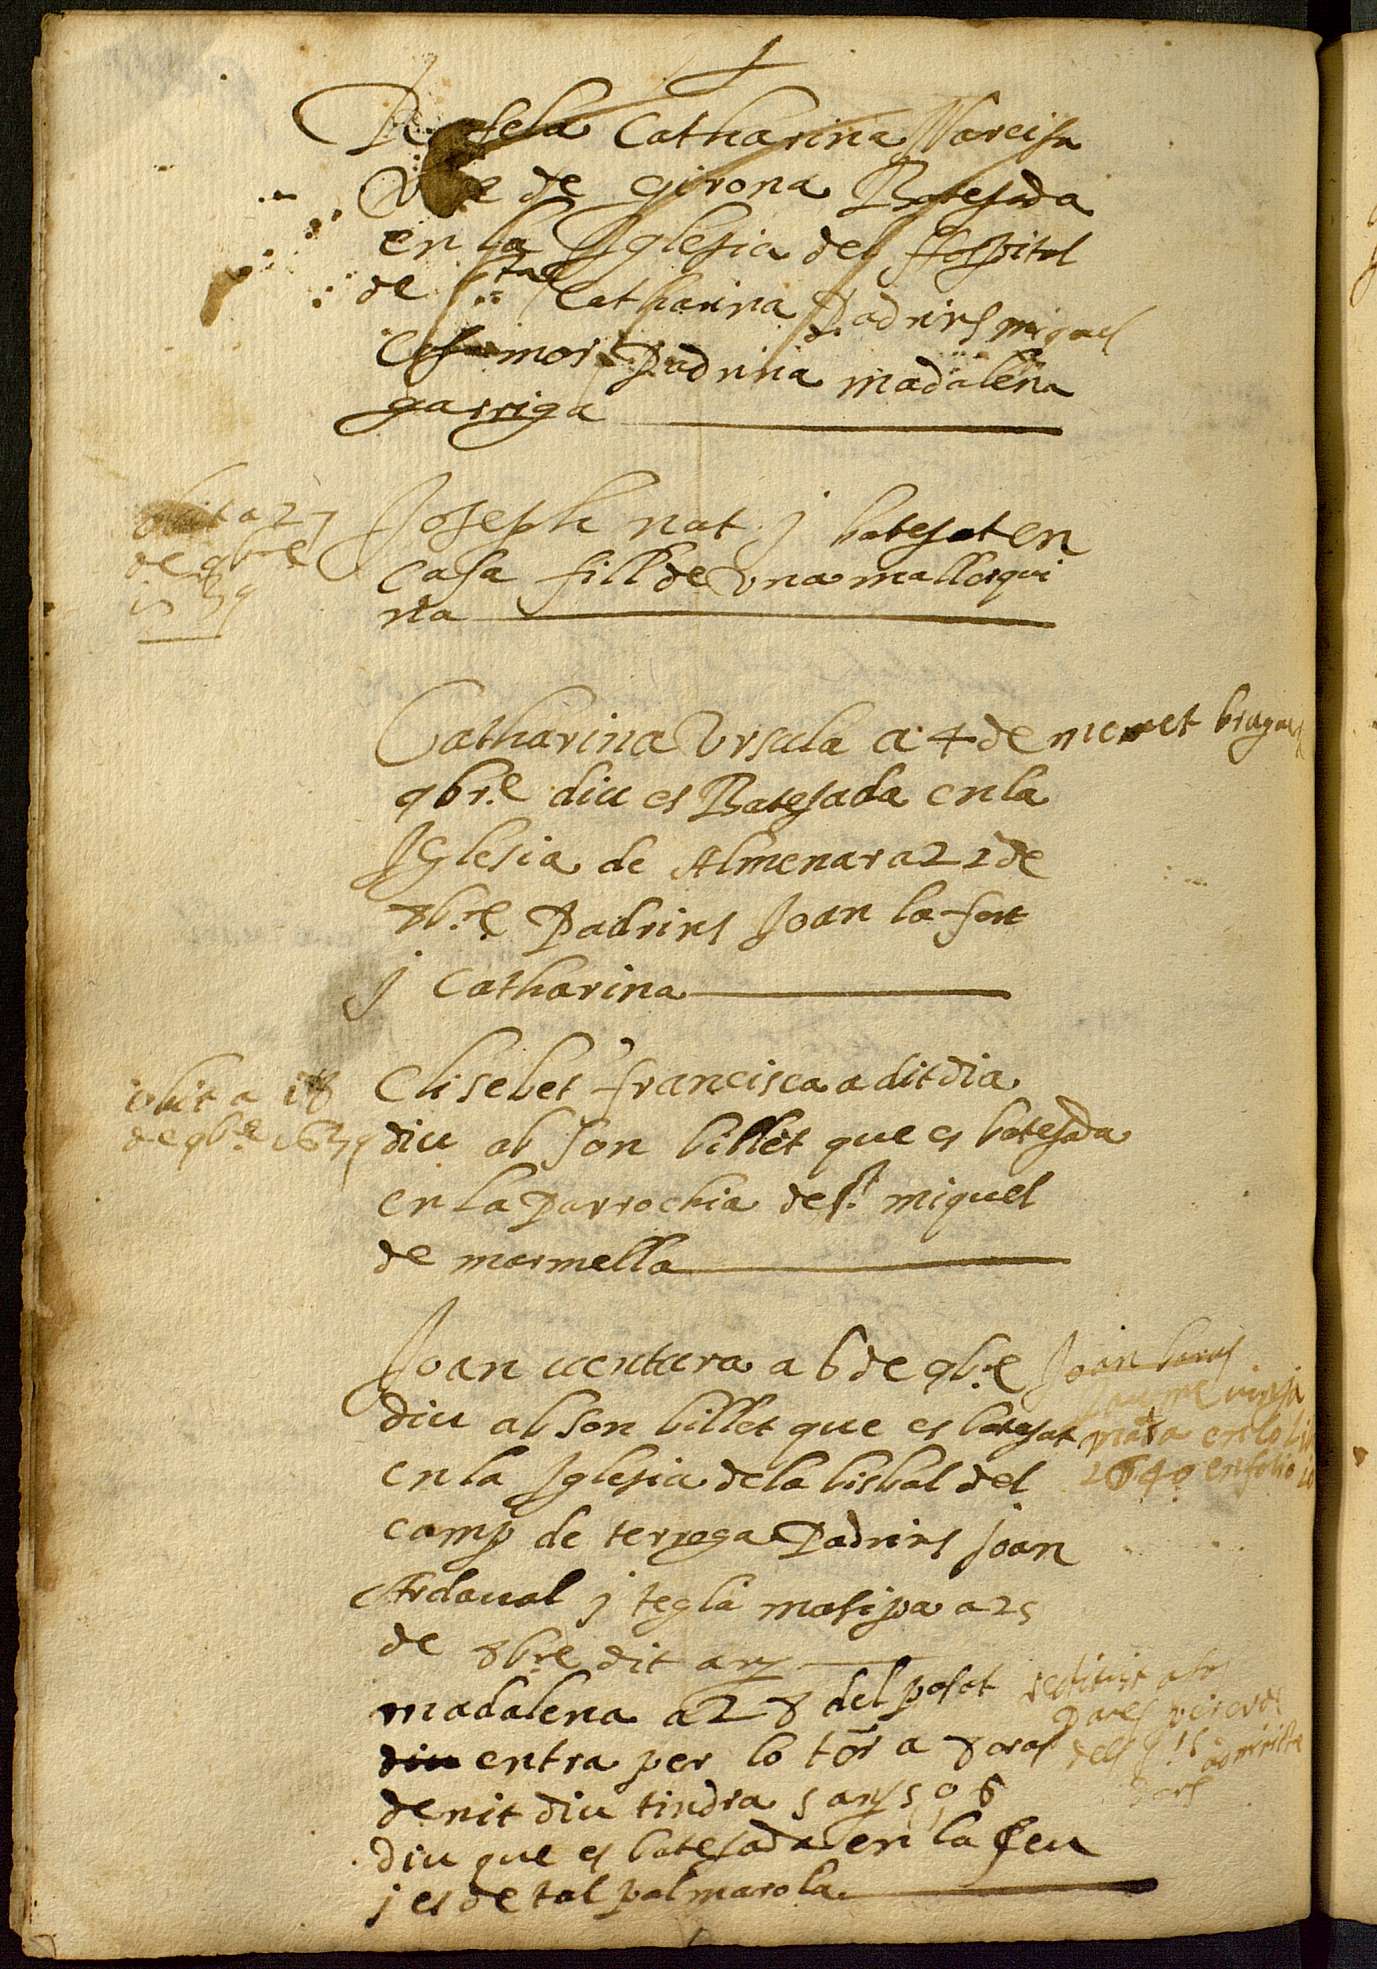 Catharina Narcisa
de Girona Batesada
en la Iglesia del Hospital
de Sta Catharina Padrins miquel
Padrina madalena
garriga
obit a 27
de 9bre
Joseph nat j batesat en
casa fill de vna mallorqui
na
Catharina Vrsula a 4 de
9bre diu es Batesada en la
Iglesia de Almenara 21 de
8bre Padrins Joan lafont
j Catharina
obit a 18
de 9bre 1639
Elisebet francisca a dit dia
diu ab son billet que es batesada
en la Parrochia de st miquel
de marmella
Joan uentura a 6 de 9bre
diu ab son billet que es batesat
en la Iglesia de la bisbal del
camp de terrega Padrins Joan
Ardaual j tegla masipa a 25
de 8bre dit any
Joan
en lo
1640 en folio
madalena a 28 del pasat
diu entra per lo torn a 8 oras
de nit diu tindra 5 anys o 6
diu que es batesada en la seu
j es de tal palmarola
restituit a
Pares
dels